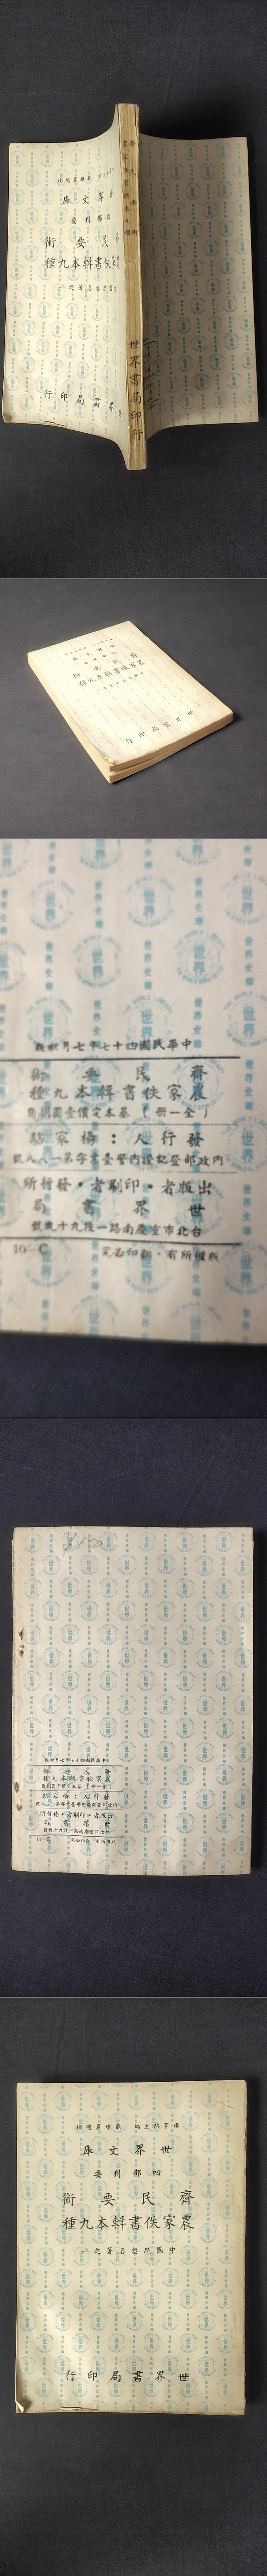 世界文庫
四部刊要
齊民要術
農家佚書輯本九種
世界書局印行
世界書局印行
齊民要術
農家佚書輯本九種
世界書局印行
中華民國四十七年七月初版
齊民要術
農家佚書輯本九種
（全一冊）基本定價壹圓
發行人：楊家駱
內政部登記證內警臺業字第一八八號
出版者・印刷者・發行所
世界書局
台北市重慶南路一段九十九號
版權所有・翻印必究
10—C
世界
世界文庫
四部刊要
齊民要術
農家佚書輯本九種
中國思想名著之一
世界書局印行